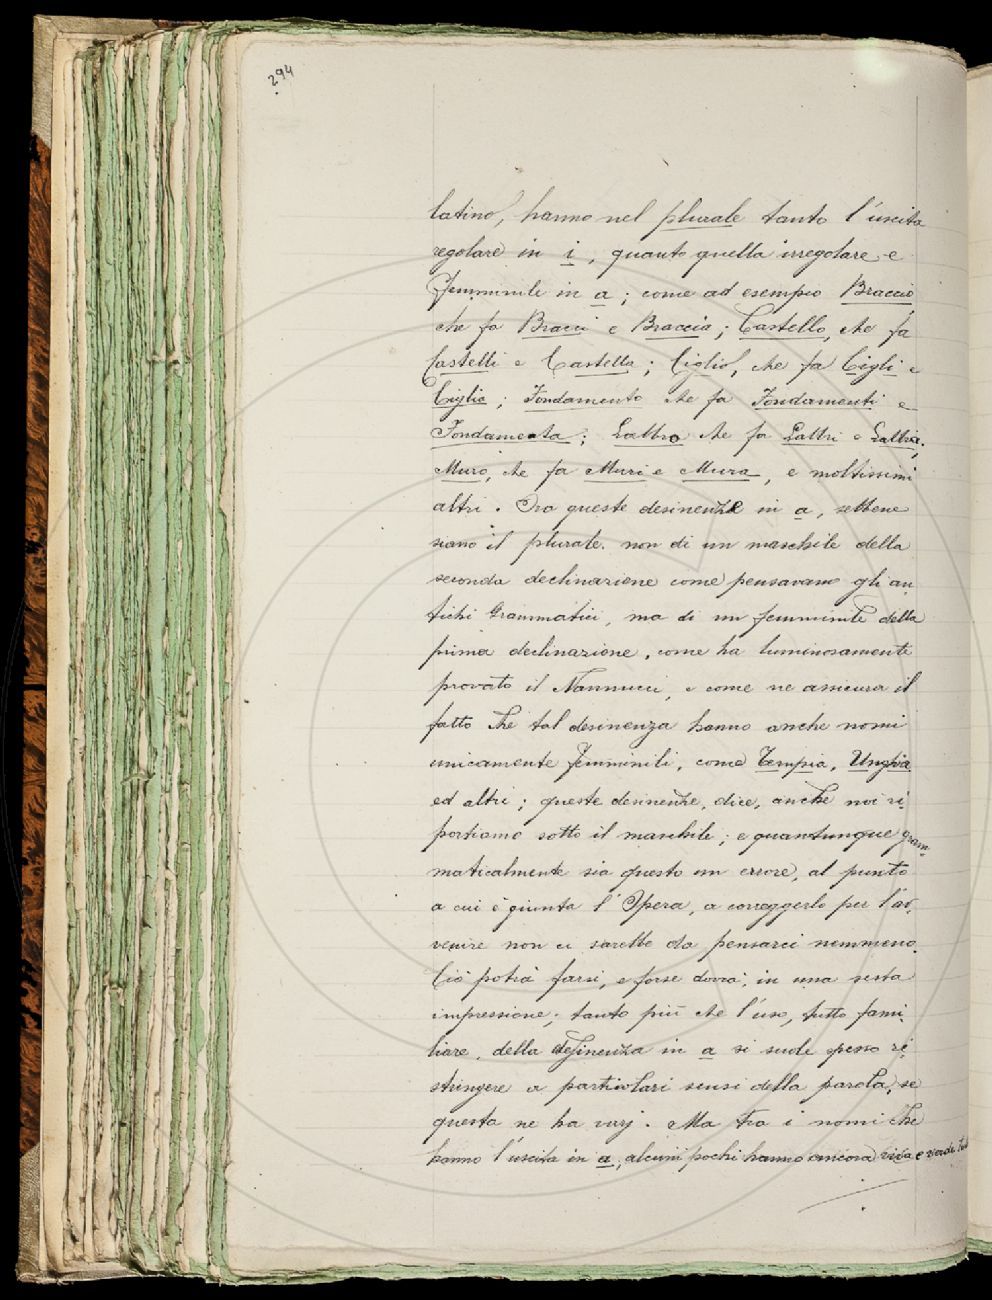 294
latino, hanno nel plurale tanto l'uscita
regolare in i, quanto quella irregolare e
femminile in a; come ad esempio Braccio
che fa Bracci e Braccia; Castello, che fa
Castelli e Castella; Ciglio, che fa Cigli e
Ciglia; Fondamento che fa Fondamenti e
Fondamenta; Labbro che fa Labbri e Labbra.
Muro, che fa Muri e Mura, e moltissimi
altri. Ora queste desinenze in a, sebbene
siano il plurale, non di un maschile della
seconda declinazione come pensavano gli an
tichi Grammatici, ma di un femminile della
prima declinazione, come ha luminosamente
provato il Nannucci, e come ne assicura il
fatto che tal desinenza hanno anche nomi
unicamente femminili, come Tempia, Unghia
ed altri; queste desinenze, dico, anche noi ri
portiamo sotto il maschile; e quantunque gram-
maticalmente sia questo un errore, al punto
a cui è giunta l'Opera, a correggerlo per l'av,
venire non ci sarebbe da pensarci nemmeno.
Ciò potrà farsi, e forse dovrà, in una sesta
impressione; tanto più che l'uso, tutto fami,
liare, della desinenza in a si suole spesso re
stringere a particolari sensi della parola, se
questa ne ha varj. Ma tra i nomi che
hanno l'uscita in a, alcuni pochi hanno ancora viva e verde